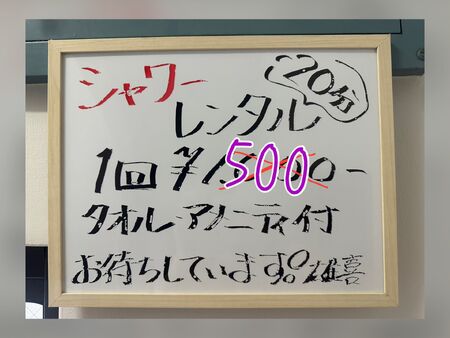 シャワー
20分
レンタル
1回 ¥500-
タオル・アメニティ付
お待ちしています。